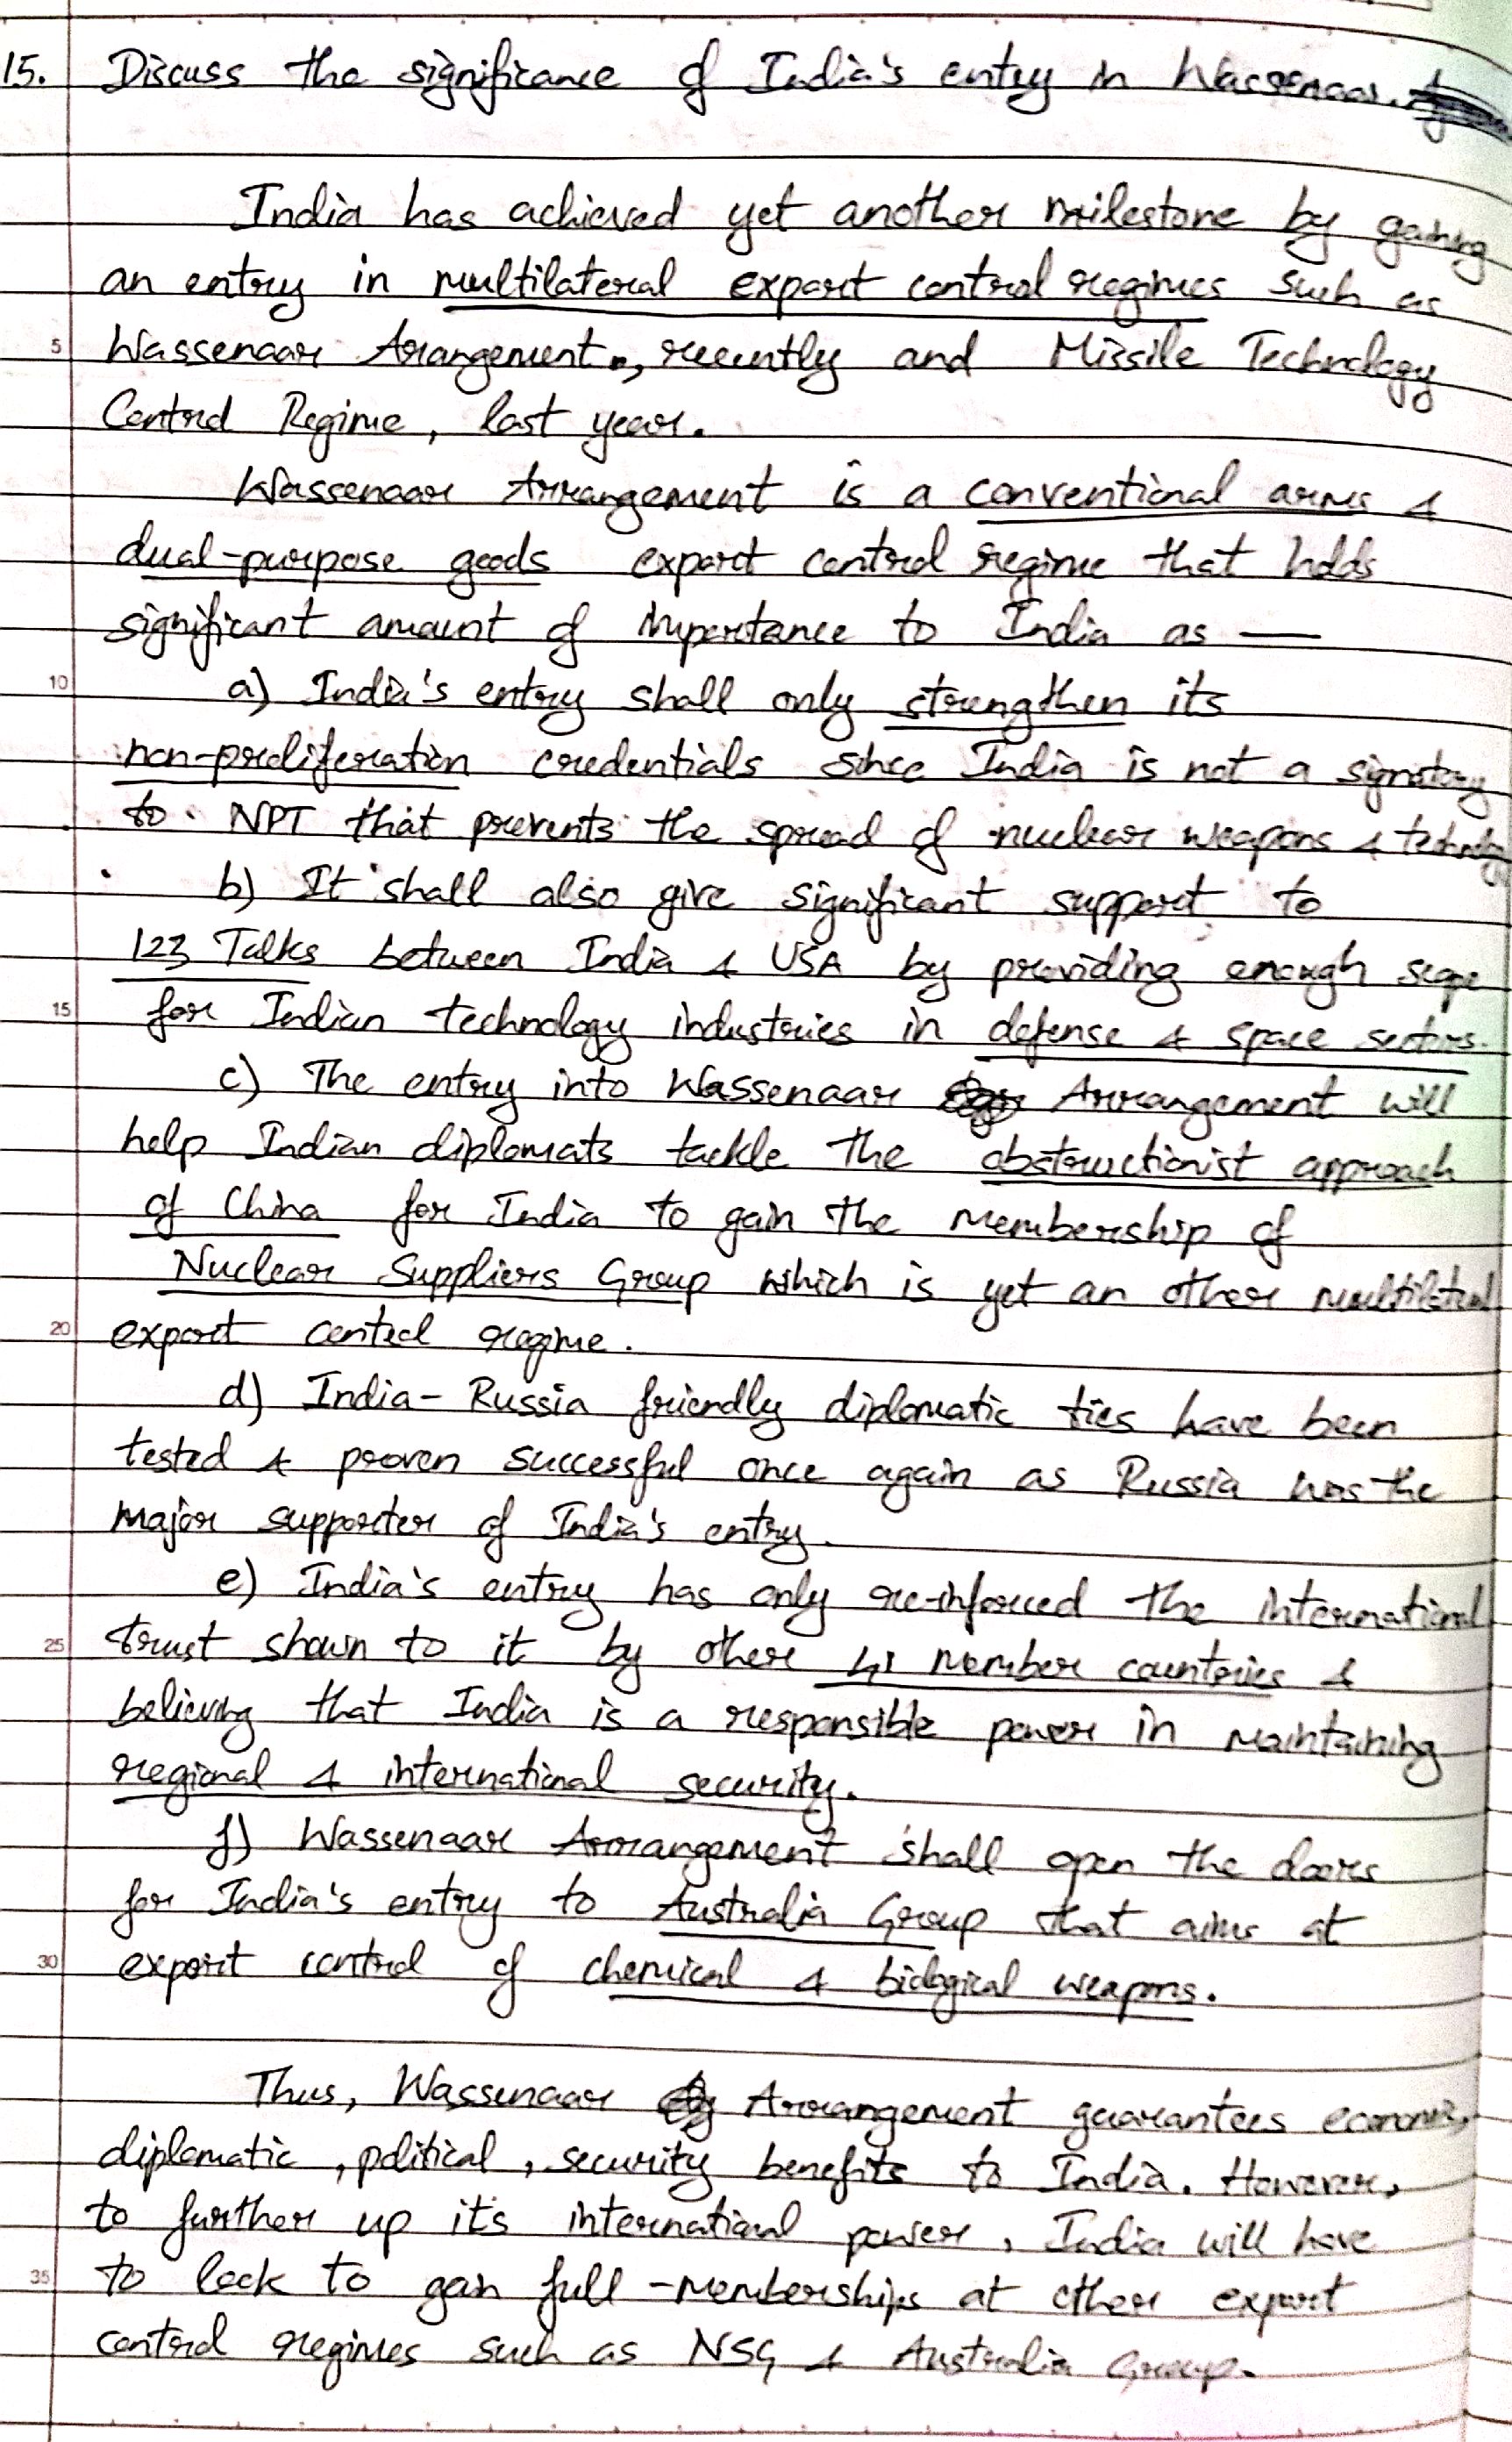 15. Discuss the significance of India's entry in Wassenaar.
India has achieved yet another milestone by gaining
an entry in multilateral export control regimes such as
5 Wassenaar Arangement, recently and Missile Technology
Control Regime, last year.
Wassenaar Arrangement is a conventional arms &
dual-purpose goods export control regime that holds
significant amount of importance to India as —
10 a) India's entry shall only strengthen its
non-proliferation credentials since India is not a signatory
to NPT that prevents the spread of nuclear weapons & technology
b) It shall also give significant support to
123 Talks between India & USA by providing enough scope
15 for Indian technology industries in defense & space sectors.
c) The entry into Wassenaar Arrangement will
help Indian diplomats tackle the obstructionist approach
of China for India to gain the membership of
Nuclear Suppliers Group which is yet an other multilateral
20 export control regime.
d) India-Russia friendly diplomatic ties have been
tested & proven successful once again as Russia was the
major supporter of India's entry.
e) India's entry has only re-inforced the international
25 trust shown to it by other 41 member countries &
believing that India is a responsible power in maintaining
regional & international security.
f) Wassenaar Arrangement shall open the doors
for India's entry to Australia Group that aims at
30 export control of chemical & biological weapons.
Thus, Wassenaar Arrangement guarantees economic,
diplomatic, political, security benefits to India. However,
to further up its international power, India will have
35 to look to gain full-memberships at other export
control regimes such as NSG & Australia Group.